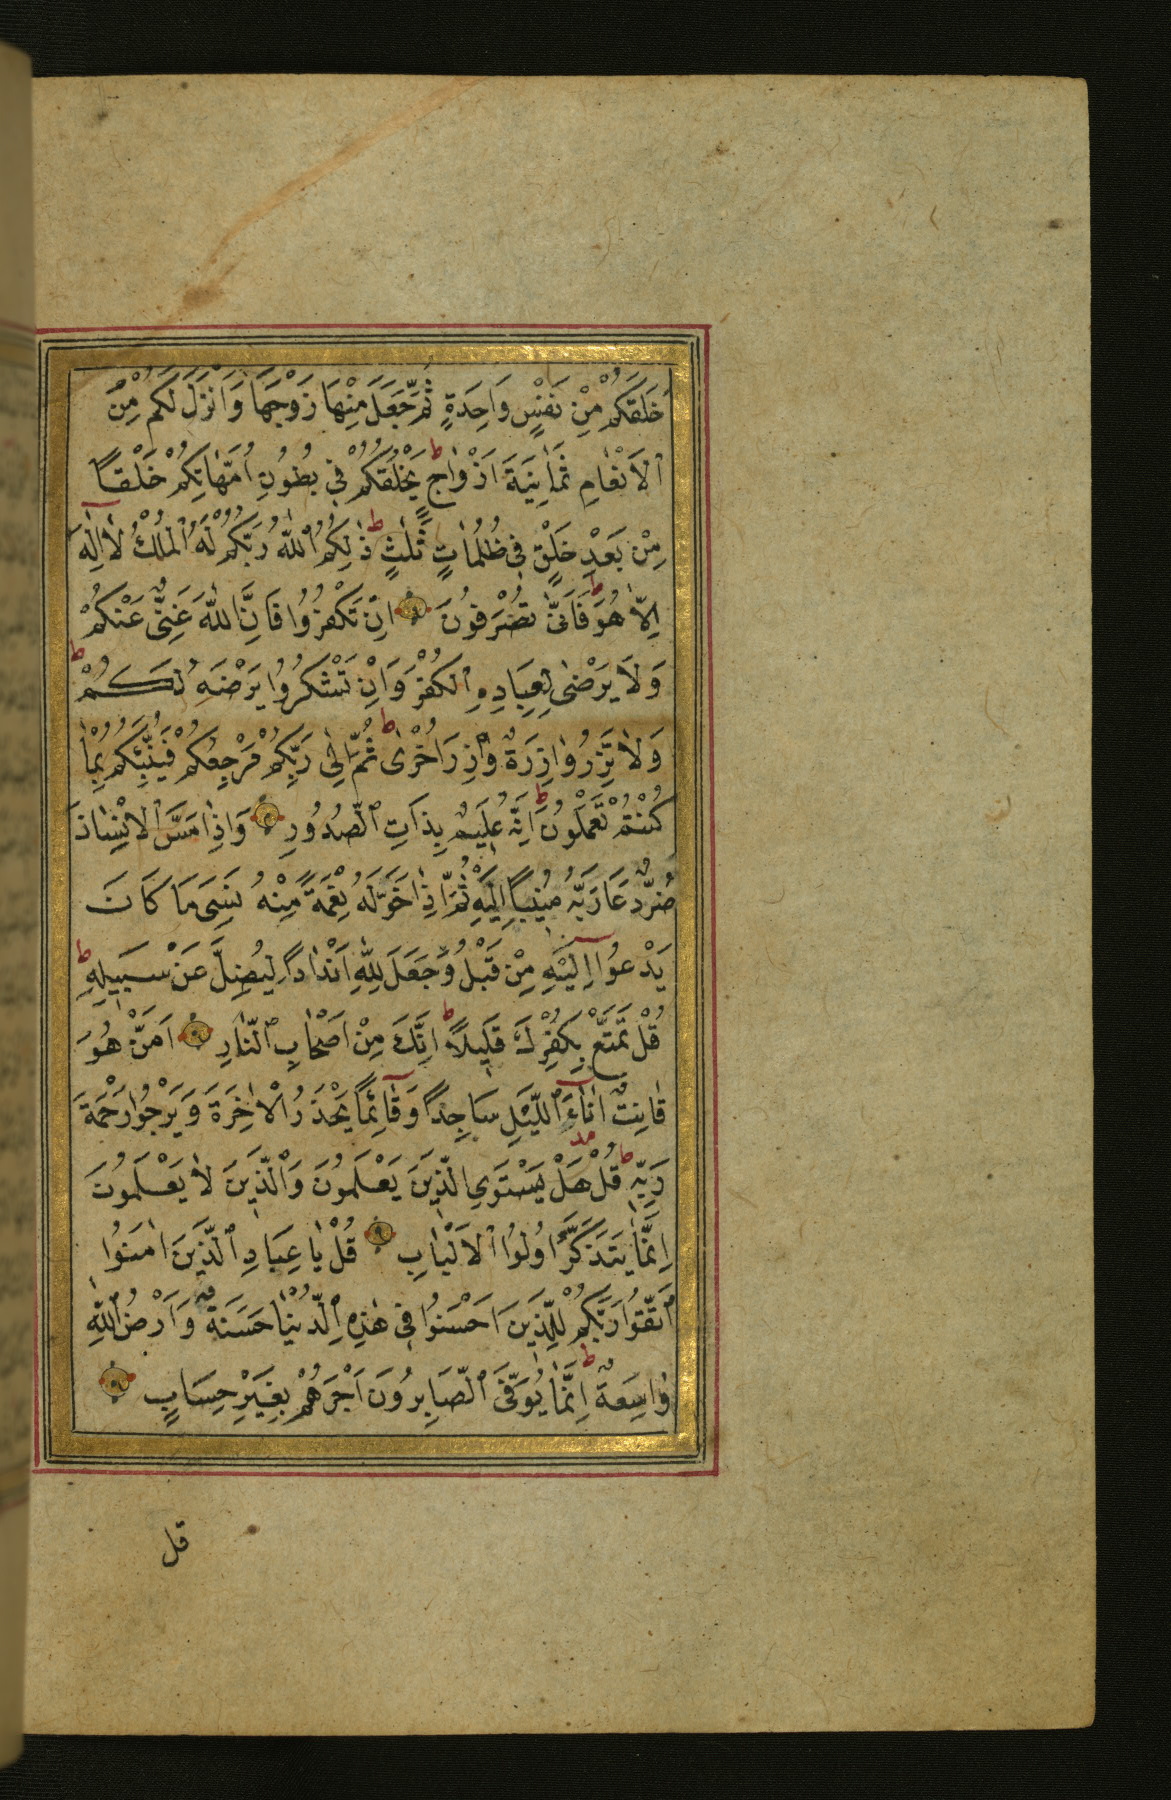 خَلَقَكُمْ مِنْ نَفْسٍ وَاحِدَةٍ ثُمَّ جَعَلَ مِنْهَا زَوْجَهَا وَاَنْزَلَ لَكُمْ مِنَ
الْاَنْعَامِ ثَمَانِيَةَ اَزْوَاجٍ ط يَخْلُقُكُمْ فِي بُطُونِ اُمَّهَاتِكُمْ خَلْقًا
مِنْ بَعْدِ خَلْقٍ فِي ظُلُمَاتٍ ثَلٰثٍ ط ذٰلِكُمُ اللّٰهُ رَبُّكُمْ لَهُ الْمُلْكُ لَا اِلٰهَ
اِلَّا هُوَ ط فَاَنّٰى تُصْرَفُونَ اِنْ تَكْفُرُوا فَاِنَّ اللّٰهَ غَنِيٌّ عَنْكُمْ
وَلَا يَرْضٰى لِعِبَادِهِ الْكُفْرَ وَاِنْ تَشْكُرُوا يَرْضَهُ لَكُمْ ط
وَلَا تَزِرُ وَازِرَةٌ وِزْرَ اُخْرٰى ط ثُمَّ اِلٰى رَبِّكُمْ مَرْجِعُكُمْ فَيُنَبِّئُكُمْ بِمَا
كُنْتُمْ تَعْمَلُونَ ط اِنَّهُ عَلِيمٌ بِذَاتِ الصُّدُورِ وَاِذَا مَسَّ الْاِنْسَانَ
ضُرٌّ دَعَا رَبَّهُ مُنِيبًا اِلَيْهِ ثُمَّ اِذَا خَوَّلَهُ نِعْمَةً مِنْهُ نَسِيَ مَا كَانَ
يَدْعُوا اِلَيْهِ مِنْ قَبْلُ وَجَعَلَ لِلّٰهِ اَنْدَادًا لِيُضِلَّ عَنْ سَبِيلِهِ ط
قُلْ تَمَتَّعْ بِكُفْرِكَ قَلِيلًا ط اِنَّكَ مِنْ اَصْحَابِ النَّارِ اَمَّنْ هُوَ
قَانِتٌ اٰنَاءَ اللَّيْلِ سَاجِدًا وَقَائِمًا يَحْذَرُ الْاٰخِرَةَ وَيَرْجُوا رَحْمَةَ
رَبِّهِ ط قُلْ هَلْ يَسْتَوِي الَّذِينَ يَعْلَمُونَ وَالَّذِينَ لَا يَعْلَمُونَ
اِنَّمَا يَتَذَكَّرُ اُولُوا الْاَلْبَابِ قُلْ يَا عِبَادِ الَّذِينَ اٰمَنُوا
اتَّقُوا رَبَّكُمْ لِلَّذِينَ اَحْسَنُوا فِي هٰذِهِ الدُّنْيَا حَسَنَةٌ وَاَرْضُ اللّٰهِ
وَاسِعَةٌ ط اِنَّمَا يُوَفَّى الصَّابِرُونَ اَجْرَهُمْ بِغَيْرِ حِسَابٍ
قل